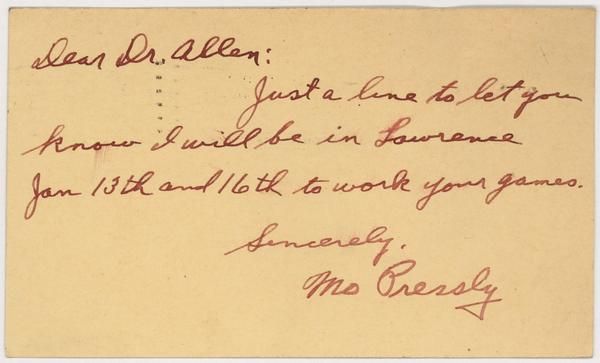 Dear Dr. Allen:
Just a line to let you
know I will be in Lawrence
Jan 13th and 16th to work your games.
Sincerely,
Mo Pressly